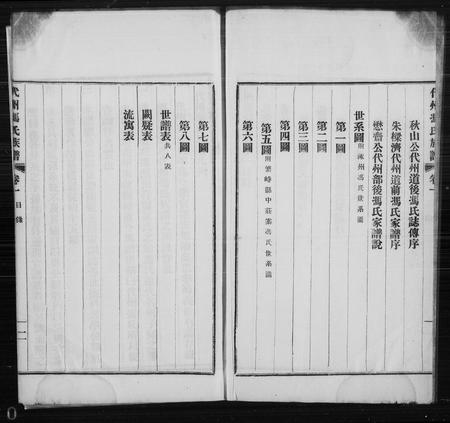 代州馮氏族譜 卷一
秋山公代州道後馮氏誌傳序
朱樑濟代州道前馮氏家譜序
懋齋公代州部後馮氏家譜說
世系圖 附涿州馮氏世系圖
第一圖
第二圖
第三圖
第四圖
第五圖 附繁峙縣中莊寨馮氏世系圖
第六圖
第七圖
第八圖
世譜表 共八表
闕疑表
流寓表
代州馮氏族譜 卷一 目錄